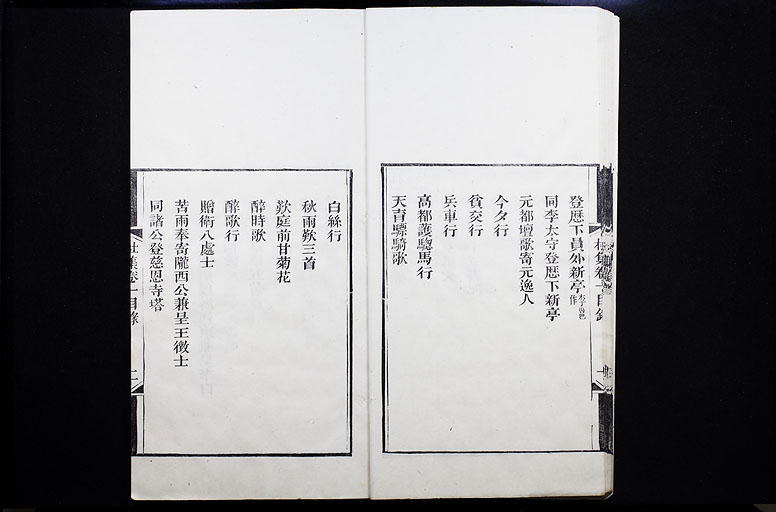 登歷下員外新亭
同李太守登歷下新亭
元都壇歌寄元逸人
今夕行
貧交行
兵車行
高都護驄馬行
天育驃騎歌
白絲行
秋雨歎三首
歎庭前甘菊花
醉時歌
醉歌行
贈衛八處士
苦雨奉寄隴西公兼呈王徵士
同諸公登慈恩寺塔
杜集卷一目錄
二